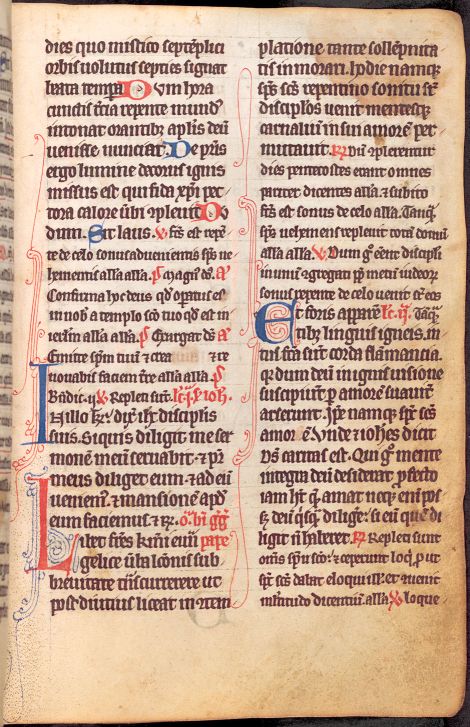 dies quo mistico septēplici
orbis uolutus septies signat
beata tempa Dum hora
cunctis tꝛcia repente mundꝰ
intonat orantibꝫ aplis deū
uenisse nunciat. De pr̄is
ergo lumine decorus ignis
missus est qui fida xp̄i pec
tora caloꝛe ūbi ꝯpleuit Do
dum. Sit laus. ỽ fc̄s est repē
te de celo sonus aduenientis sp̄s ue
hementis alla alla. p̄ magnꝰ dn̄s. A
Confirma hoc deus qd̓ opatus es
in nob̄ a templo sc̄o tuo qd̓ est in
ierl̄m alla alla. p̄ Exurgat ds̄ A
Emitte sp̄m tuū ⁊ crea ⁊ re
nouabis faciem tr̄e alla alla. p̄
Bn̄dic. ii ỽ Repleti sunt. lc̄. i. p̄ ioh̄.
In illo tꝑe. dix̄ ih̄c discipl̓is
suis. Si quis diligit me ser
monē meū seruabit. ⁊ pr̄
meus diliget eum. ⁊ ad eū
ueniemꝰ. ⁊ mansionē apd̓
eum faciemus. ⁊ rꝫ. o. bi̓ gg̓
Libet fr̄es km̄i euuā
gelice ūba lōnis sub
breuitate tn̄scurrere ut
post diutius liceat in ꝯtem
platione tante sollēpnita
tis inmorari. hodie namqꝫ
sp̄s sc̄s repentino sonitu sꝑ
discipl̓os uenit mentesqꝫ
carnaliū in sui amoꝛē per
mutauit. ꝶ Dū ꝯplerentur
dies pentecostes erant omnes
pariter dicentes alla. ⁊ subito
fc̄s est sonus de celo alla. Tanqͣ̄
sp̄s uehemens repleuit totā domū
alla alla. ỽ Dum gͦ eēnt discipl̓i
in unū ꝯgregati ꝓp̄ metū iudeoꝝ
sonus repente de celo uenit sꝑ eos
Et foris apparuēt lc̄. ii. Tāqꝫ
tibꝫ linguis igneis. in
tus fc̄a sūt corda flāmancia.
qꝫ dum deū in ignis uisione
susceperūt ꝑ amoꝛē suauit̓
arserunt. Ipe namqꝫ sp̄s sc̄s
amoꝛ ē. Vnde ⁊ iohes dicit
ds̄ caritas est. Qui gͦ mente
integra deū desiderat ꝓfecto
iam ht̄ qͣ̄ amat neqꝫ eni̓ pos
sꝫ deū qͥsqꝫ diligē. si eū quē di
ligit n̄ haberet. ꝶ Repleti sunt
om̄s sp̄u sc̄o. ⁊ ceperunt loqͥ. ꝓ ut
sp̄s sc̄s dabat eloqui ill̓ ⁊ ꝯuenit
m̄ltitudo dicentiū alla. ỽ loque